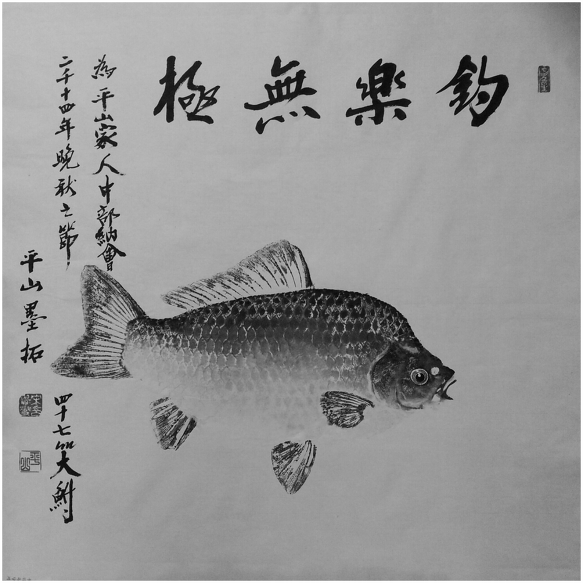 釣樂無極
為平山家人中部納會
二千十四年晩秋之節
平山墨拓
四十七㎝大鮒